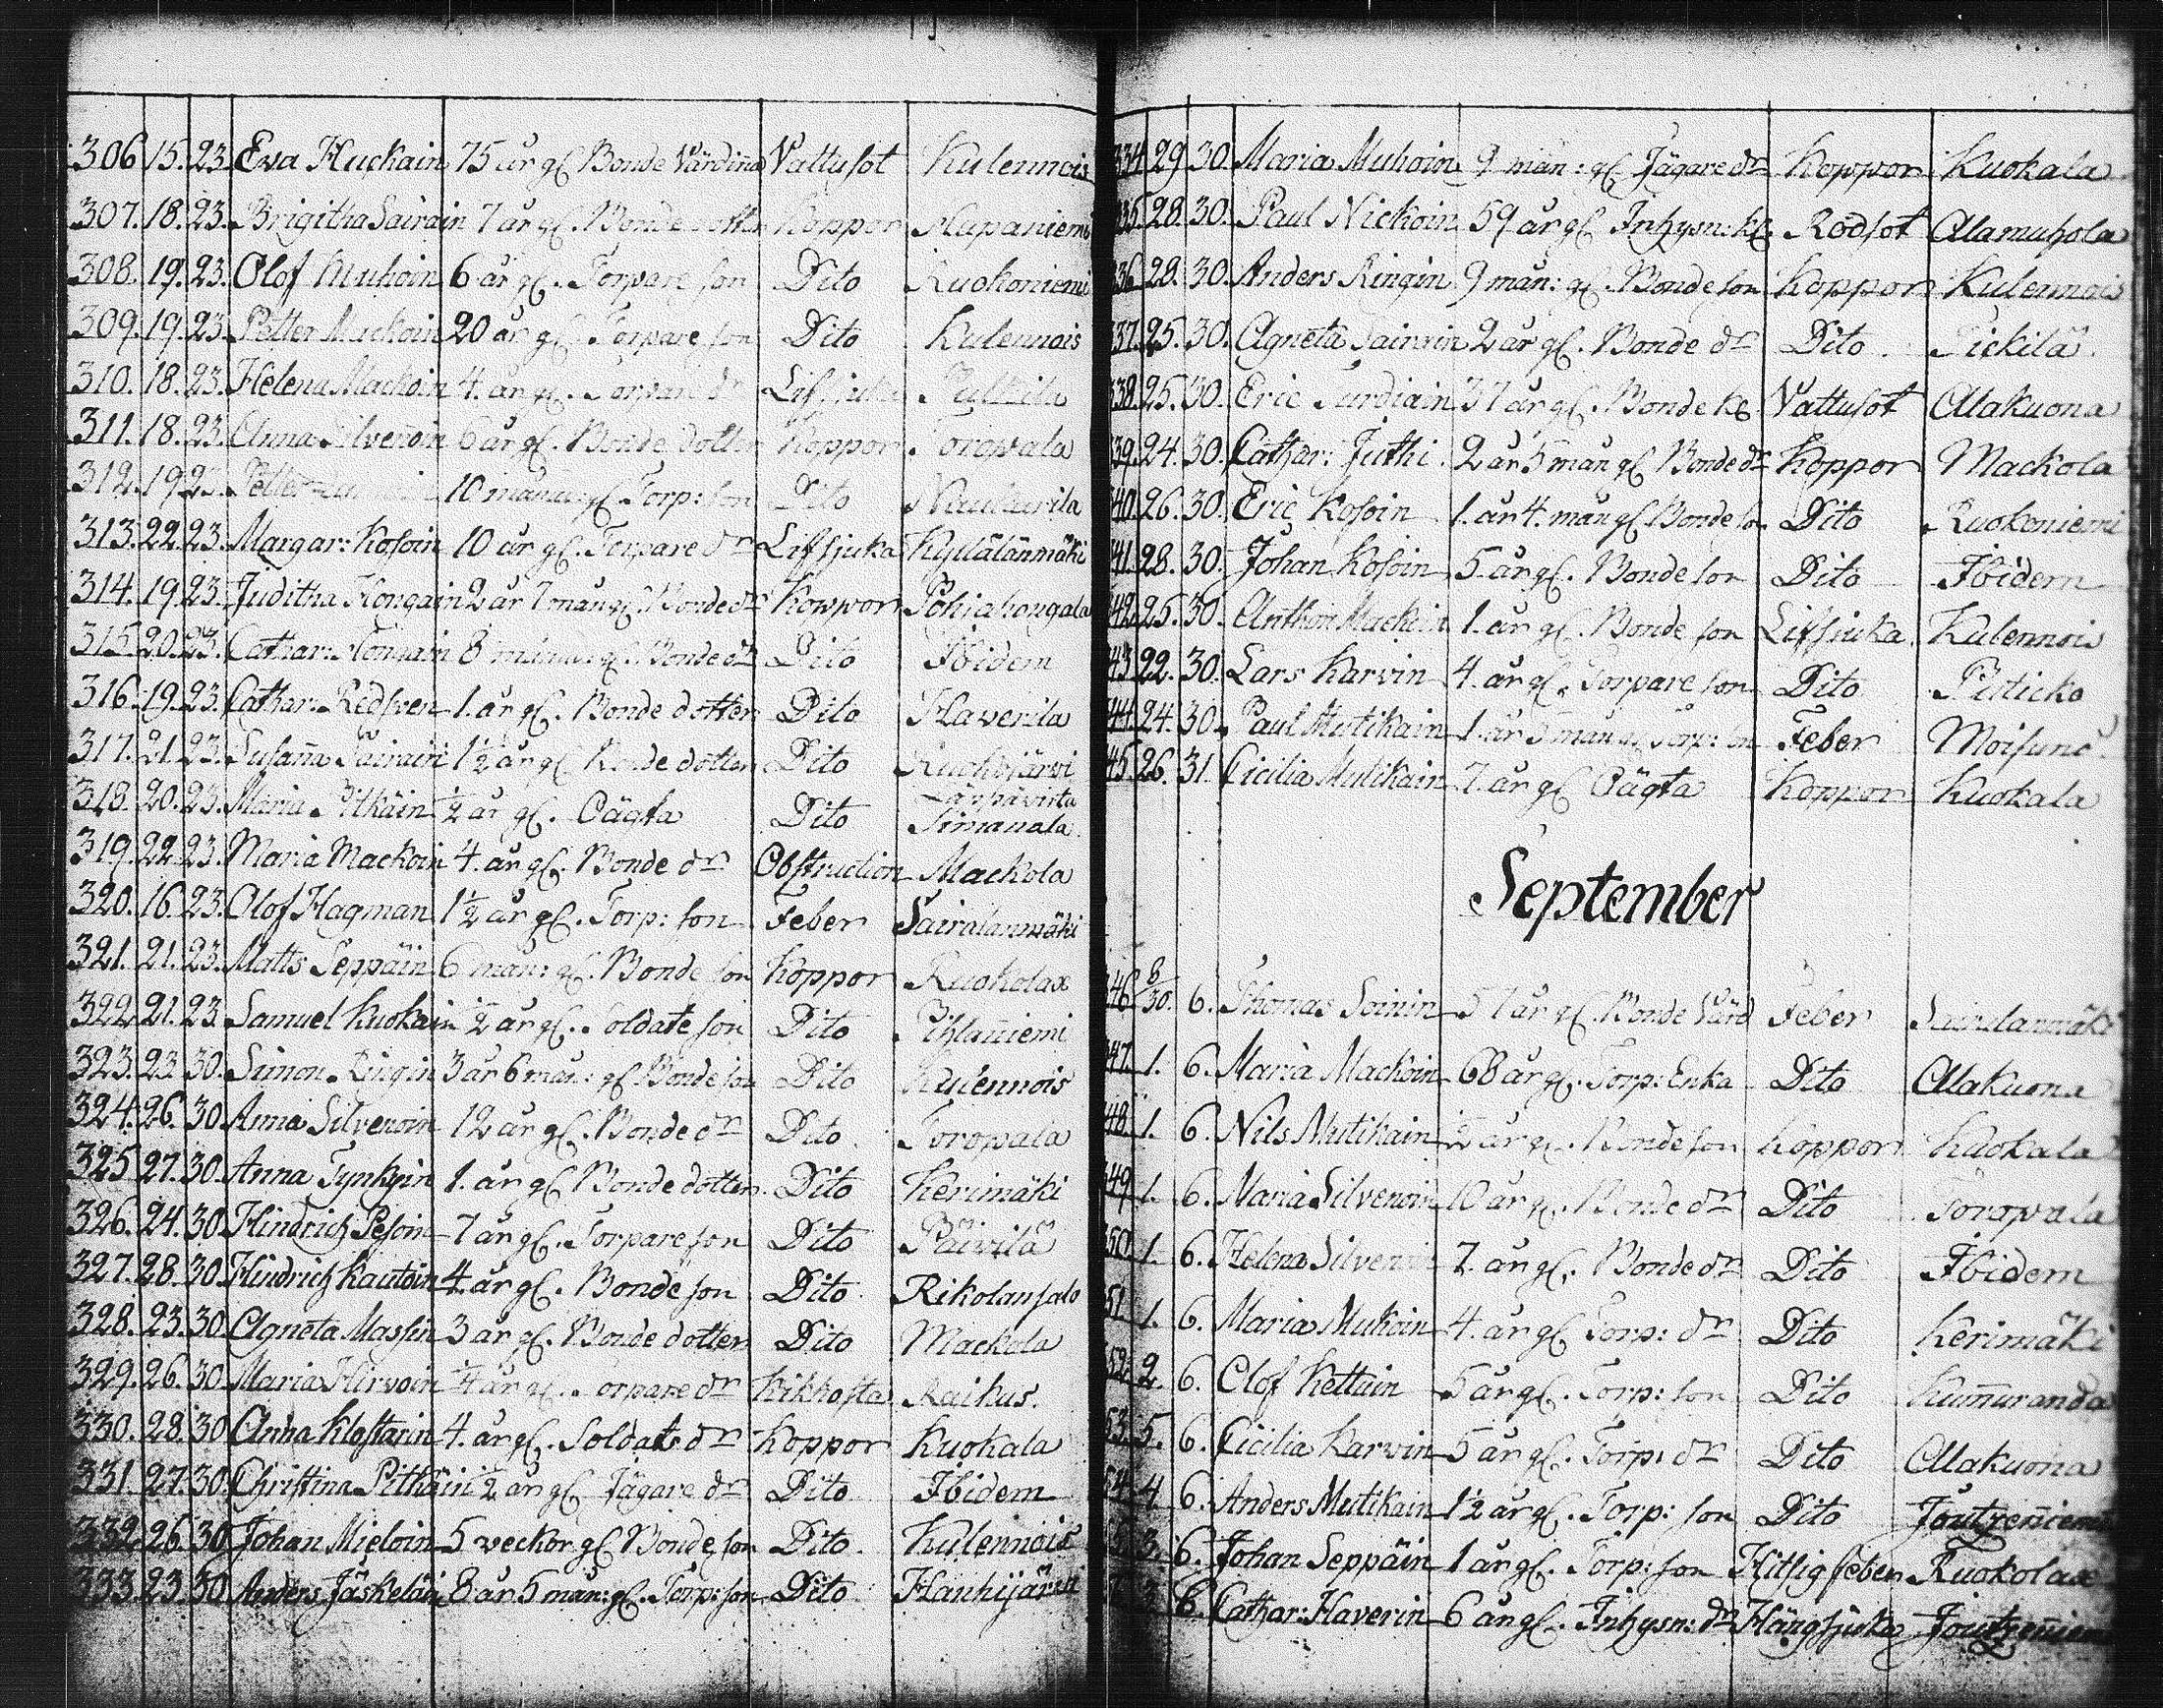 306. 15. 23. Eva Huckain 75 år gl. Bonde Värdiña Vattusot Kulennois
307. 18. 23. Brigitha Sairain 7 år gl. Bonde dotter Koppor Hapaniemi
308. 19. 23. Olof Muhoin 6 år gl. Torpare son Dito Ruokoniemi
309. 19. 23. Petter Mackoin 20 år gl. Torpare son Dito Kulennois
310. 18. 23. Helena Mackoin 4. år gl. Torpare dr Lifsjuka
311. 18. 23. Anna Silvenoin 6 år gl. Bonde dotter Koppor Toropala
312. 19. 23. Petter 10 månu: gl. Torp: son Dito
313. 22. 23. Margar: Kosoin 10 år gl. Torpare dr Lifsjuka Kyrlälänmäki
314. 19. 23. Juditha Kongain 2 år 7 mån gl. Bonde dr Koppor Pohiakongala
315. 20. 23. Cathar: Kongain 8 månu: gl. Bonde dr Dito Ibidem
316. 19. 23. Cathar: Redsven 1. år gl. Bonde dotter Dito Haverila
317. 21. 23. Susaña Sairain 1½ år gl. Bonde dotter Dito Ruokojärvi
318. 20. 23. Maria Pitkäin ½ år gl. Oägta Dito Läpävirta Simanala
319. 22. 23. Maria Mackoin 4. år gl. Bonde dr Obstruction Mackola
320. 16. 23. Olof Hagman 1½ år gl. Torp: son Feber Sairalanmäki
321. 21. 23. Matts Seppäin 6 mån: gl. Bonde son Koppor Ruokolax
322. 21. 23. Samuel Kuokain ½ år gl. Soldate son Dito Pihlañiemi
323. 23. 30. Simon Ringin 3 år 6 mån: gl Bonde son Dito Kulennois
324. 26. 30. Anna Silvenoin 12 år gl. Bonde dr Dito Toropala
325. 27. 30. Anna Tynkyin 1. år gl. Bonde dotter Dito Kerimäki
326. 24. 30. Hindrich Pesoin 7 år gl. Torpare son Dito Päivilä
327. 28. 30. Hindrich Kautoin 4. år gl. Bonde son Dito Rikolansalo
328. 23. 30. Agneta Massin 3 år gl. Bonde dotter Dito Mackola
329. 26. 30. Maria Hirvoin ¼ år gl. Torpare dr Kikhosta Raikus.
330. 28. 30. Anna Klostarin 4. år gl. Soldats dr Koppor Kuokala
331. 27. 30. Christina Pitkäin ½ år gl. Jägare dr Dito Ibidem
332. 26. 30. Johan Mieloin 5 veckor gl. Bonde son Dito Kulennois
333. 23. 30. Anders Jäskeläin 8 år 5 mån: gl. Torp: son Dito Hanhijärvi
334. 29. 30. Maria Muhoin 9 mån: gl. Jägare dr Koppor Kuokala
335. 28. 30. Paul Nickoin 59 år gl. Inhysn: kl. Rödsot Alamuhola
336. 28. 30. Anders Ringin 9 mån: gl. Bonde son Koppor Kulennois
337. 25. 30. Agneta Sairain 2 år gl. Bonde dr Dito
338. 25. 30. Eric Turdiain 37 år gl. Bonde Vattusot Alakuona
339. 24. 30. Cathar: Juthi 2 år 5 mån gl Bonde dr Koppor Mackola
340. 26. 30. Eric Kosoin 1. år 4. mån gl Bonde so Dito Ruokoniemi
341. 28. 30. Johan Kosoin 5 år gl. Bonde son Dito Ibidem
342. 25. 30. Anthon Mackoin 1. år gl. Bonde son Lifsjuka Kulennois
343. 22. 30. Lars Karvin 4. år gl. Torpare son Dito
344. 24. 30. Paul Mutikain 1. år 5 mån gl Torp: son Feber Moisund
345. 26. 31. Cicilia Mutikain 7. år gl Oägta Koppor Kuokala
September
346. 8/30. 6. Thomas Soinin 57 år gl. Bonde Värd Feber Sairalanmäki
347. 1. 6. Maria Mackoin 68 år gl. Torp: Enka Dito Alakuona
348. 1. 6. Nils Mutikain ½ år gl. Bonde son Koppor Kuokala
349. 1. 6. Maria Silvenoin 10 år gl. Bonde dr Dito Toropala
350. 1. 6. Helena Silvenoin 7. år gl. Bonde dr Dito Ibidem
351. 1. 6. Maria Muhoin 4. år gl Torp: dr Dito Kerimäki
352. 2. 6. Olof Kettuin 5 år gl. Torp: son Dito Kum̃uranda
353. 5. 6. Cicilia Karvin 5 år gl. Torp: dr Dito Alakuona
354. 4. 6. Anders Mutikain 1½ år gl. Torp: son Dito Joutzeñiemi
3. 6. Johan Seppäin 1 år gl. Torp: son Hitsig feber Ruokolax
3. 6. Cathar: Haverin 6 år gl. Inhysn: dr Hängsjuka Joutzeñiemi